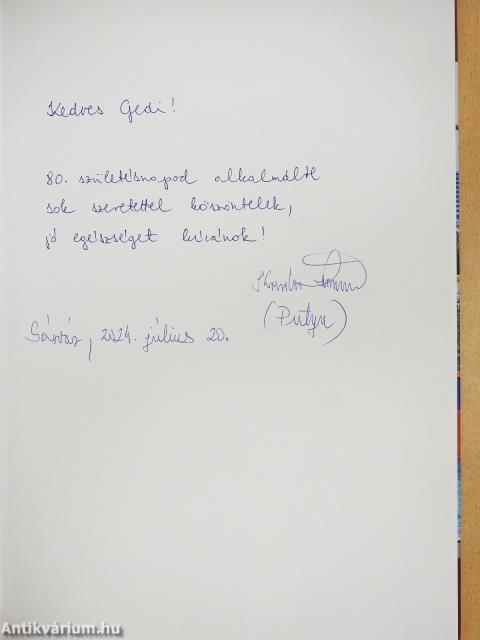 Kedves Gedi!
80. születésnapod alkalmából
sok szeretettel köszöntelek,
jó egészséget kívánok!
(Putyu)
Sárvár, 2024. július 20.
Antikvárium.hu